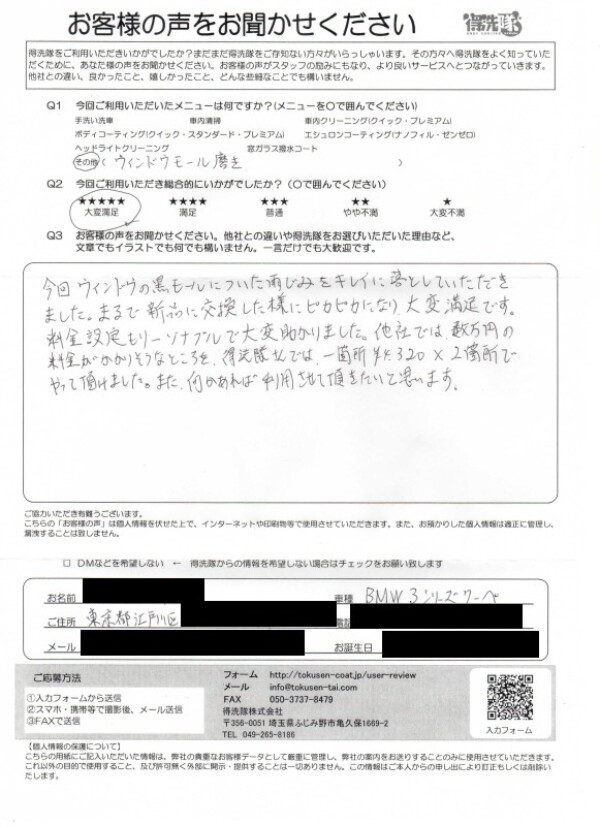 お客様の声をお聞かせください
得洗隊
得洗隊をご利用いただきいかがでしたか？まだまだ得洗隊をご存知ない方々がいらっしゃいます。その方々へ得洗隊をよく知っていた
だくために、あなた様の声をお聞かせください。お客様の声がスタッフの励みにもなり、より良いサービスへとつながっていきます。
他社との違い、良かったこと、嬉しかったこと、どんな些細なことでも構いません。
Q1 今回ご利用いただいたメニューは何ですか？(メニューを○で囲んでください)
手洗い洗車 車内清掃 車内クリーニング(クイック・プレミアム)
ボディコーティング(クイック・スタンダード・プレミアム) エシュロンコーティング(ナノフィル・ゼンゼロ)
ヘッドライトクリーニング 窓ガラス撥水コート
その他( ウィンドウモール磨き )
Q2 今回ご利用いただき総合的にいかがでしたか？（○で囲んでください）
★★★★★ ★★★★ ★★★ ★★ ★
大変満足 満足 普通 やや不満 大変不満
Q3 お客様の声をお聞かせください。他社との違いや得洗隊をお選びいただいた理由など、
文章でもイラストでも何でも構いません。一言だけでも大歓迎です。
今回ウィンドウの黒モールについた雨じみをキレイに落としていただき
ました。まるで新品に交換した様にピカピカになり、大変満足です。
料金設定もリーゾナブルで大変助かりました。他社では、数万円の
料金がかかりそうなところを、得洗隊さんでは、一箇所¥4.320×2箇所で
やって頂けました。また、何かあれば利用させて頂きたいと思います。
ご協力いただき有難うございます。
こちらの「お客様の声」は個人情報を伏せた上で、インターネットや印刷物等で使用させていただきます。また、お預かりした個人情報は適正に管理し、
漏洩することは致しません。
□ DMなどを希望しない ← 得洗隊からの情報を希望しない場合はチェックをお願い致します
お名前 車種 BMW 3シリーズクーペ
ご住所 東京都江戸川区
メール お誕生日
ご応募方法
①入力フォームから送信
②スマホ・携帯等で撮影後、メール送信
③FAXで送信
フォーム http://tokusen-coat.jp/user-review
メール info@tokusen-tai.com
FAX 050-3737-8479
得洗隊株式会社
〒356-0051 埼玉県ふじみ野市亀久保1669-2
TEL 049-265-8186
入力フォーム
【個人情報の保護について】
こちらの用紙にご記入いただいた情報は、弊社の貴重なお客様データとして厳重に管理し、弊社の案内をお送りすることのみに使用させていただきます。
これ以外の目的で使用すること、及び許可無く外部に開示・提供することは一切ありません。この情報はご本人からの申し出により訂正もしくは削除い
たします。